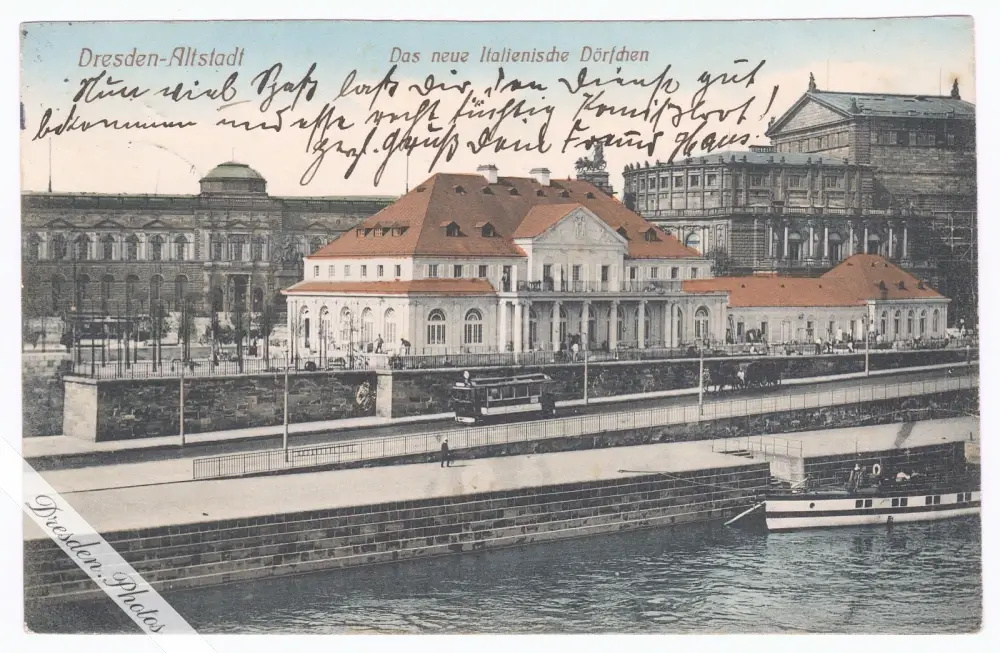 Dresden-Altstadt
Das neue Italienische Dörfchen
Nun viel Spaß laß Dir den Dienst gut
bekommen und esse recht tüchtig Komißbrot!
Herzl. Gruß Dein Freund Hans.
Dresden.Photos